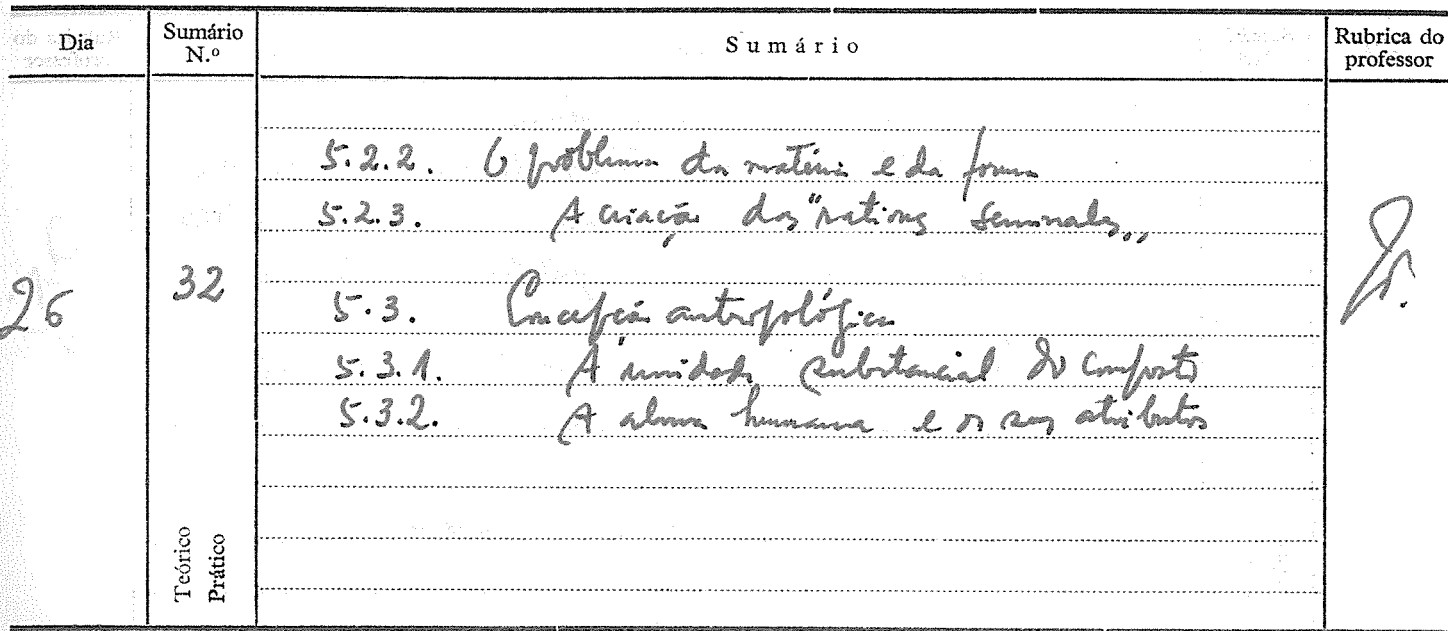 Dia Sumário N.º Sumário Rubrica do professor
5.2.2. O problema da matéria e da forma
5.2.3. A criação das "rationes seminales„
26 32
5.3. Concepção antropológica
5.3.1. A unidade substancial do composto
5.3.2. A alma humana e os seus atributos
Teórico
Prático